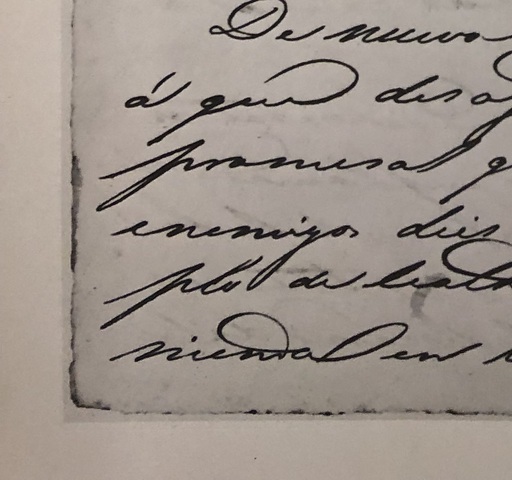 De nuevo
á que desa
promesa q
enemigos dies
pló de lealt
niendo en